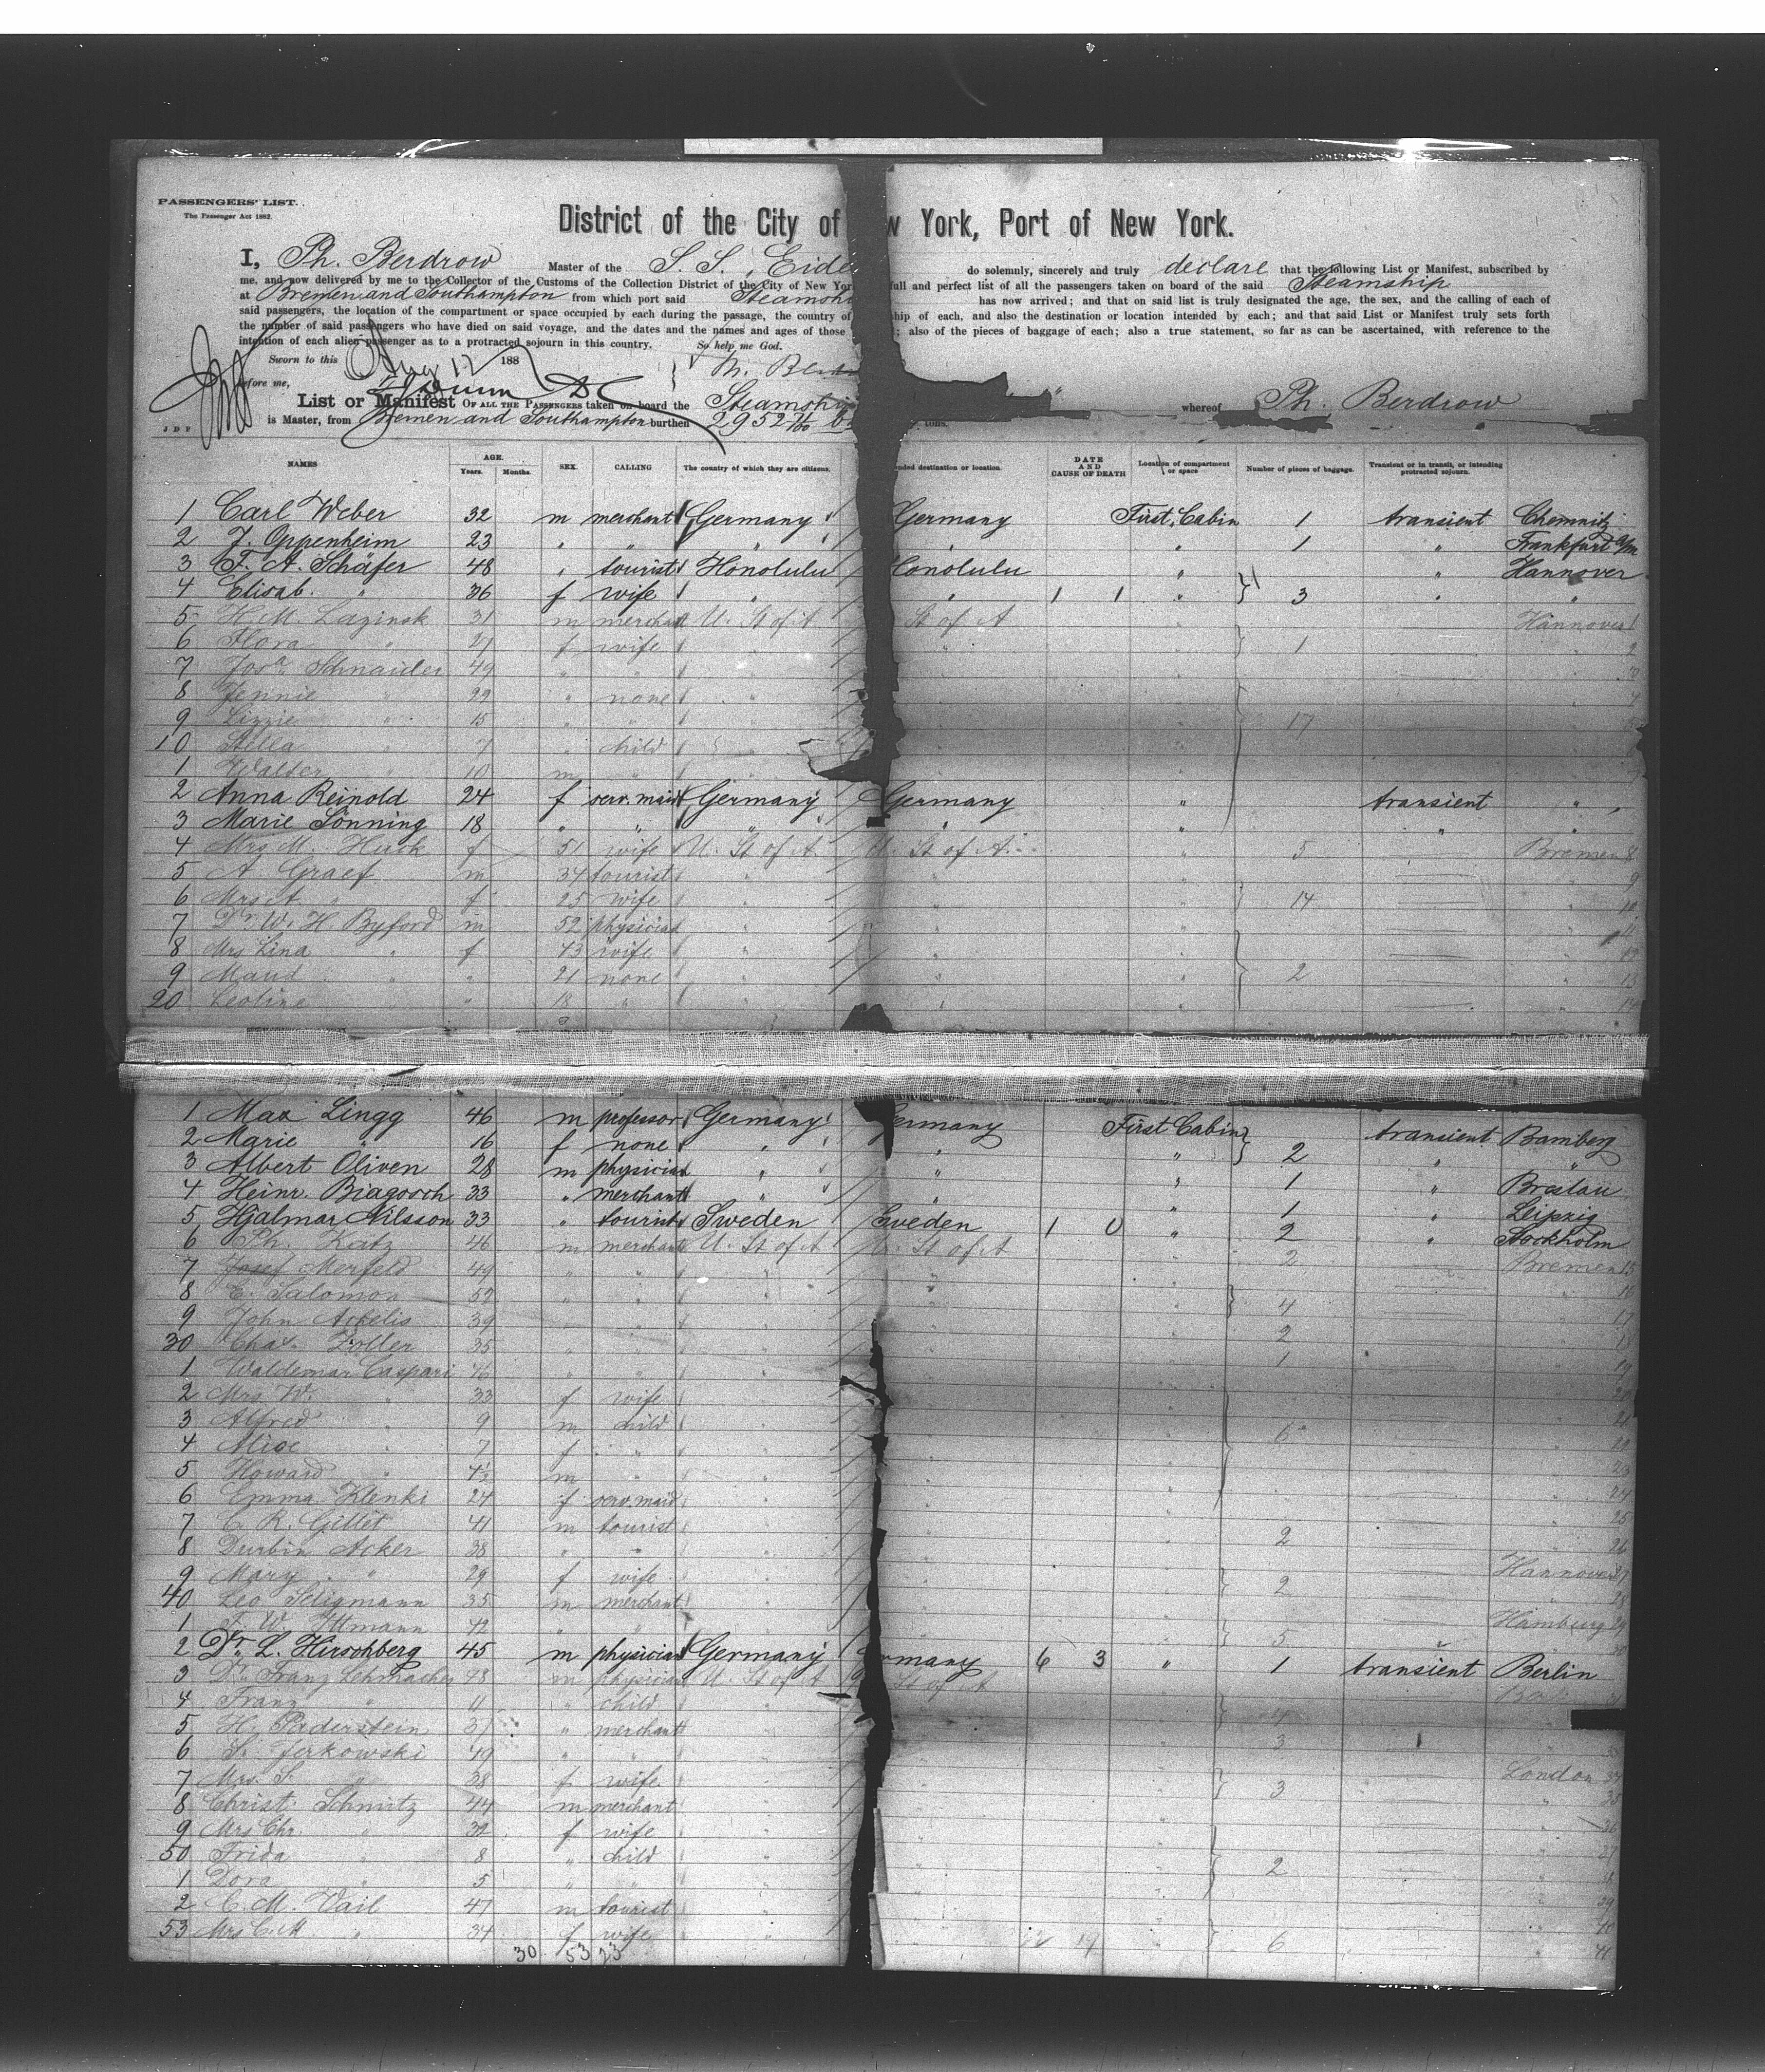 PASSENGERS' LIST.
The Passenger Act 1882.
District of the City of w York, Port of New York.
I, Ph. Berdrow Master of the S. S. „Eide do solemnly, sincerely and truly declare that the following List or Manifest, subscribed by
me, and now delivered by me to the Collector of the Customs of the Collection District of the City of New Yor full and perfect list of all the passengers taken on board of the said Steamship
at Bremen and Southampton from which port said Steamshi has now arrived; and that on said list is truly designated the age, the sex, and the calling of each of
said passengers, the location of the compartment or space occupied by each during the passage, the country of ship of each, and also the destination or location intended by each; and that said List or Manifest truly sets forth
the number of said passengers who have died on said voyage, and the dates and the names and ages of those ; also of the pieces of baggage of each; also a true statement, so far as can be ascertained, with reference to the
intention of each alien passenger as to a protracted sojourn in this country. So help me God.
Sworn to this Aug 12 188
before me,
List or Manifest OF ALL THE PASSENGERS taken on board the Steamshi whereof Ph. Berdrow
J D P is Master, from Bremen and Southampton burthen 2952 71/100 tons.
NAMES AGE. Years. Months. SEX. CALLING The country of which they are citizens. nded destination or location. DATE AND CAUSE OF DEATH Location of compartment or space Number of pieces of baggage. Transient or in transit, or intending protracted sojourn.
1 Carl Weber 32 m merchant Germany Germany First Cabin 1 transient Chemnitz
2 J. Oppenheim 23 " " " " " 1 " Frankfurt a/m
3 F. A. Schäfer 48 " tourist Honolulu Honolulu " " Hannover
4 Elisab. " 36 f wife " " 1 1 " 3 " "
5 H. M. Lazinsk 31 m merchant U. St of A St of A Hannover 1
6 Flora " 21 f wife " " 1 2
7 Josa. Schnaider 49 " " " 3
8 Jennie " 22 " none " 4
9 Lizzie " 15 " " " 17
10 Stella " 7 " child "
1 Walter " 10 m " " 7
2 Anna Reinold 24 f serv. maid Germany Germany " transient "
3 Marie Sönning 18 " " " " " "
4 Mrs M. Huck f 51 wife U. St of A U. St of A. " 5 Bremen 8
5 A Graef m 34 tourist " " 9
6 Mrs A. " f 25 wife " " 14 10
7 Dr. W. H. Byford m 52 physician " " 11
8 Mrs Lina " f 43 wife " " 12
9 Maud " " 21 none " " 2 13
20 Leoline " 18 " " " 14
1 Max Lingg 46 m professor Germany Germany First Cabin transient Bamberg
2 Marie " 16 f none " " " 2 " "
3 Albert Oliven 28 m physician " " " 1 " Breslau
4 Heinr. Biagosch 33 " merchant " " 1 " Leipzig
5 Hjalmar Nilsson 33 " tourist Sweden Sweden 1 0 " 2 " Stockholm
6 Ph. Katz 46 m merchant U. St of A U. St of A 2 Bremen 15
7 Josef Merfeld 49 " " " " 16
8 E. Salomon 52 " " " 4 17
9 John Achelis 39 " " " 2 18
30 Chas. Zoller 35 " " " 1 19
1 Waldemar Caspari 46 " " " 20
2 Mrs W. " 33 f wife " 21
3 Alfred " 9 m child " 6 22
4 Alice " 7 f " " 23
5 Howard " 4½ m " " 24
6 Emma Klenki 24 f serv. maid " 25
7 C. R. Gillet 41 m tourist " 2 26
8 Durbin Acker 38 " " " Hannover 27
9 Mary " 29 f wife " 2 28
40 Leo Seligmann 35 m merchant Hamburg 29
1 F. W. Ittmann 42 " " 5 30
2 Dr. L. Hirschberg 45 m physician Germany rmany 6 3 " 1 transient Berlin
3 Dr. Franz Lehmacher 48 m physician U. St of A St of A
4 Franz " 11 " child " 4
5 H. Paderstein 37 " merchant 3
6 S. Jerkowski 49 " " London 34
7 Mrs. S. " 38 f wife 3 35
8 Christ. Schmitz 44 m merchant " 36
9 Mrs Chr. " 32 f wife
50 Frida " 8 " child " 2
1 Dora " 5 " " 39
2 C. M. Vail 47 m tourist " 40
53 Mrs C. M " 34 f wife 6 41
30 53 23